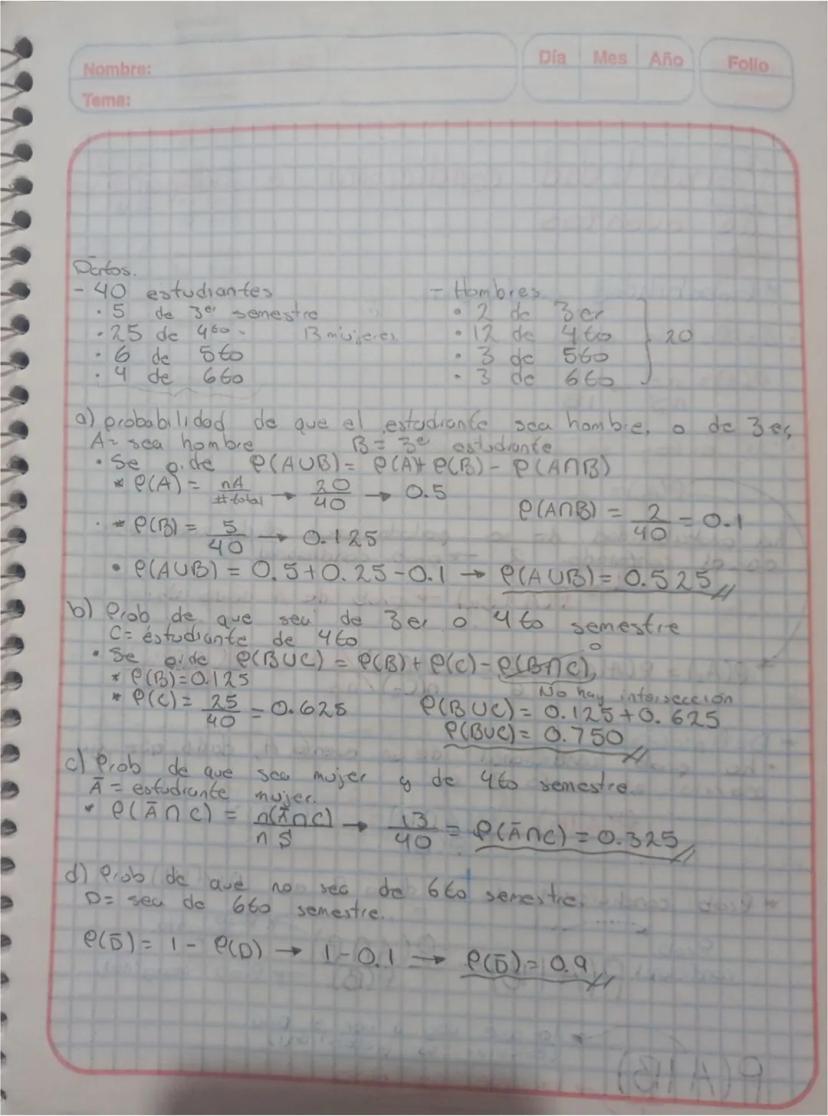 Nombre:
Tema:
Día Mes Año Folio
Datos.
- 40 estudiantes
· 5 de 3er semestre
· 25 de 4to - 13 mujeres
· 6 de 5to
· 4 de 6to
- Hombres
· 2 de 3er
· 12 de 4to
· 3 de 5to
· 3 de 6to
20
a) probabilidad de que el estudiante sea hombre, o de 3er,
A= sea hombre B= 3er estudiante
• Se pide P(A∪B)= P(A)+ P(B)- P(A∩B)
* P(A)= nA/#total → 20/40 → 0.5
P(A∩B) = 2/40 = 0.1
* P(B)= 5/40 → 0.125
• P(A∪B) = 0.5+0.25-0.1 → P(A∪B) = 0.525
b) Prob de que sea de 3er o 4to semestre
C= estudiante de 4to
• Se pide P(B∪C) = P(B) + P(C) - P(B∩C) 0
No hay intersección
* P(B)=0.125
* P(C)= 25/40 = 0.625
P(B∪C) = 0.125+0.625
P(B∪C)= 0.750
c) Prob de que sea mujer y de 4to semestre.
Ā = estudiante mujer.
* P(Ā∩C) = n(Ā∩C)/nS → 13/40 = P(Ā∩C) = 0.325
d) Prob de que no sea de 6to semestre.
D= sea de 6to semestre.
P(D̄) = 1 - P(D) → 1-0.1 → P(D̄)= 0.9